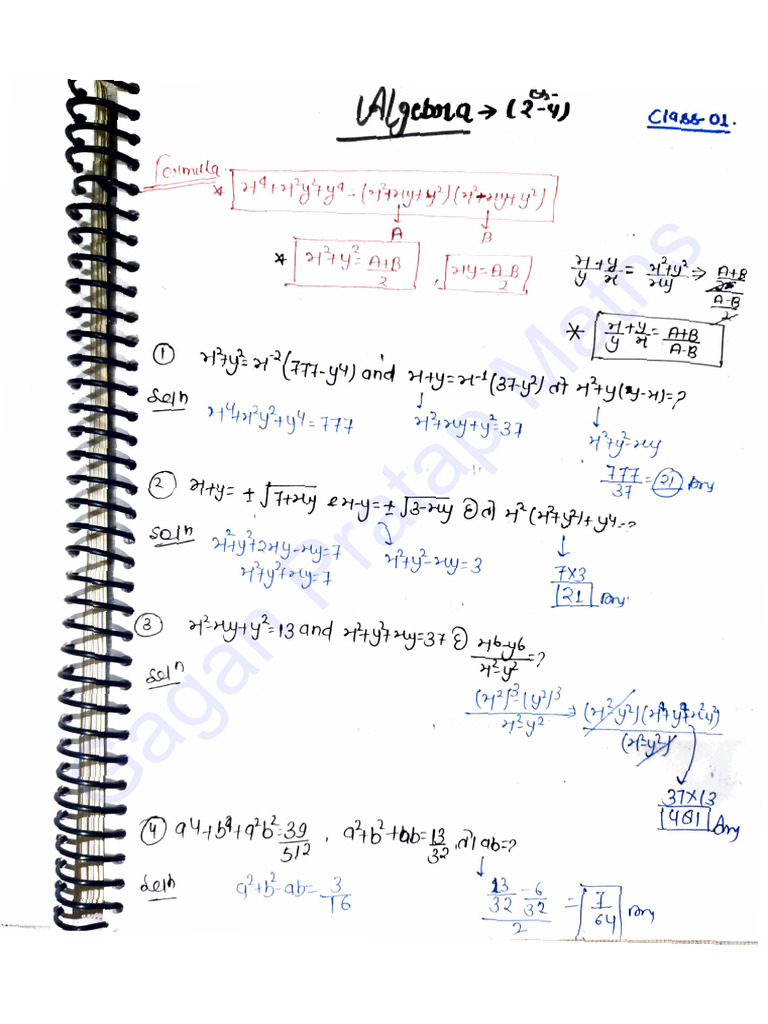 Algebra → (2-4)
Class 01.
Formulla
* x⁴+x²y²+y⁴ = (x²+xy+y²)(x²+xy+y²)
A B
* x²+y² = (A+B)/2 , xy = (A-B)/2
x/y + y/x = (x²+y²)/xy ⇒ ((A+B)/2)/((A-B)/2)
* x/y + y/x = (A+B)/(A-B)
① x²+y² = x⁻²(777-y⁴) and x+y = x⁻¹(37-y²) तो x²+y(y-x)=?
Soln x⁴+x²y²+y⁴=777 x²+xy+y²=37 x²+y²-xy
777/37 = 21 Ans
② x+y = ±√(7+xy) & x-y = ±√(3-xy) है तो x²(x²+y²)+y⁴=?
Soln x²+y²+2xy-xy=7 x²+y²-xy=3
x²+y²+xy=7 7×3
21 Ans
③ x²-xy+y²=13 and x²+y²+xy=37 है (x⁶-y⁶)/(x²-y²)=?
Soln ((x²)³-(y²)³)/(x²-y²) ⇒ (x²-y²)(x⁴+y⁴+x²y²)/(x²-y²)
37×13
481 Ans
④ a⁴+b⁴+a²b²=39/512 , a²+b²+ab=13/32, तो ab=?
Soln a²+b²-ab=3/16 (13/32 - 6/32)/2 = 7/64 Ans
Gagan Pratap Maths